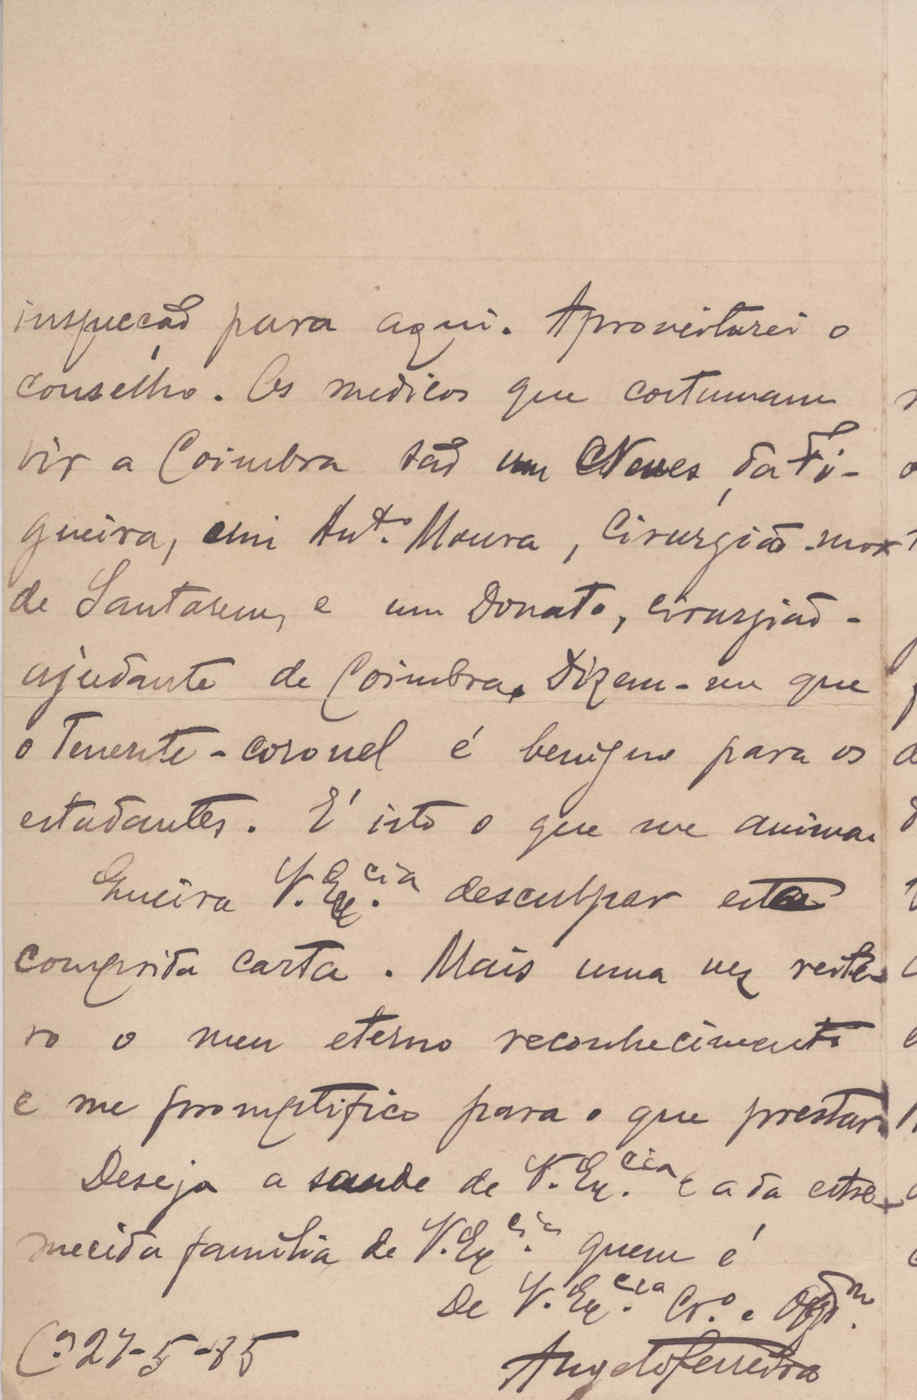 inspecção para aqui. Aproveitarei o
conselho. Os medicos que costumam
vir a Coimbra são um Neves, da Fi-
gueira, um Ant.º Moura, Cirurgião-mor
de Santarem, e um Donato, cirurgião-
ajudante de Coimbra. Dizem-me que
o Tenente-coronel é benigno para os
estudantes. É isto o que me anima.
Queira V. Ex.cia desculpar esta
comprida carta. Mais uma vez reite-
ro o meu eterno reconhecimento
e me promptifico para o que prestar.
Deseja a saude de V. Ex.cia e a da estre-
mecida familia de V. Ex.cia quem é
De V. Ex.cia Cr.º e
C.ª 27-5-85
Angelo Ferreira